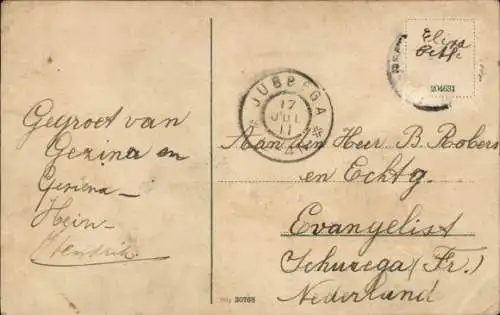 Gegroet van
Gezina en
Gesiena
Hein
Hendrik.
JUBBEGA
17
JUL
11
Elisa
204631
Aan den Heer B. Robers
en Echtg.
Evangelist
Schurega (Fr.)
Nederland
30765